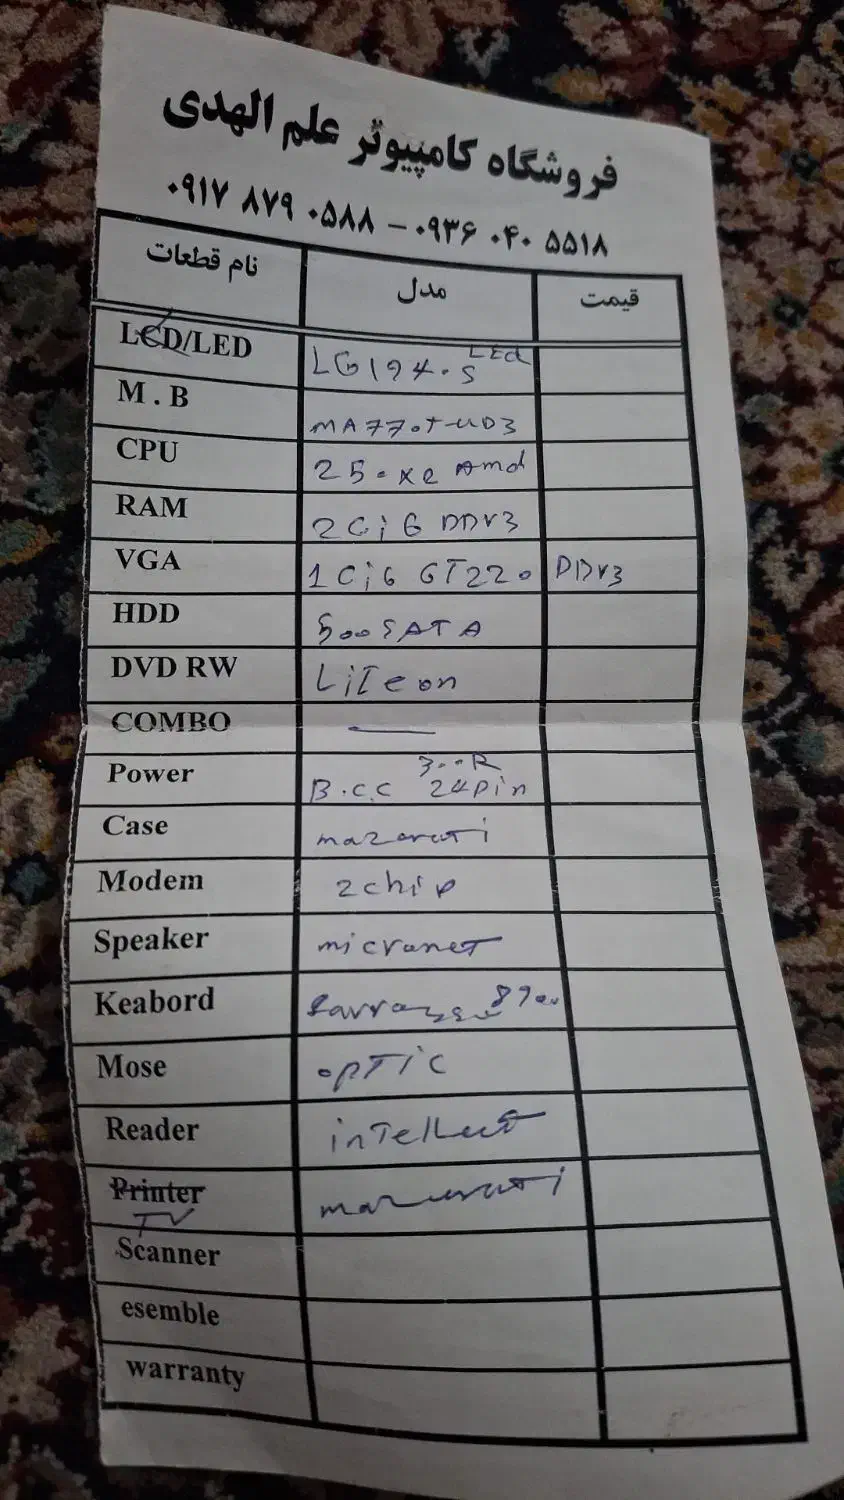 فروشگاه کامپیوتر علم الهدی
۰۹۱۷ ۸۷۹ ۰۵۸۸ – ۰۹۳۶ ۰۴۰ ۵۵۱۸
نام قطعات مدل قیمت
LCD/LED LG 194۰S LEd
M . B MA77۰T-UD3
CPU 25۰ xe Amd
RAM 2 Gi G DDr3
VGA 1 Gi G GT 22۰ DDr3
HDD 5۰۰ SATA
DVD RW LiTeon
COMBO —
Power B.C.C 3۰۰R 24pin
Case mazarati
Modem 2chip
Speaker micronet
Keabord
Mose opTiC
Reader inTellect
Printer TV mazarati
Scanner
esemble
warranty